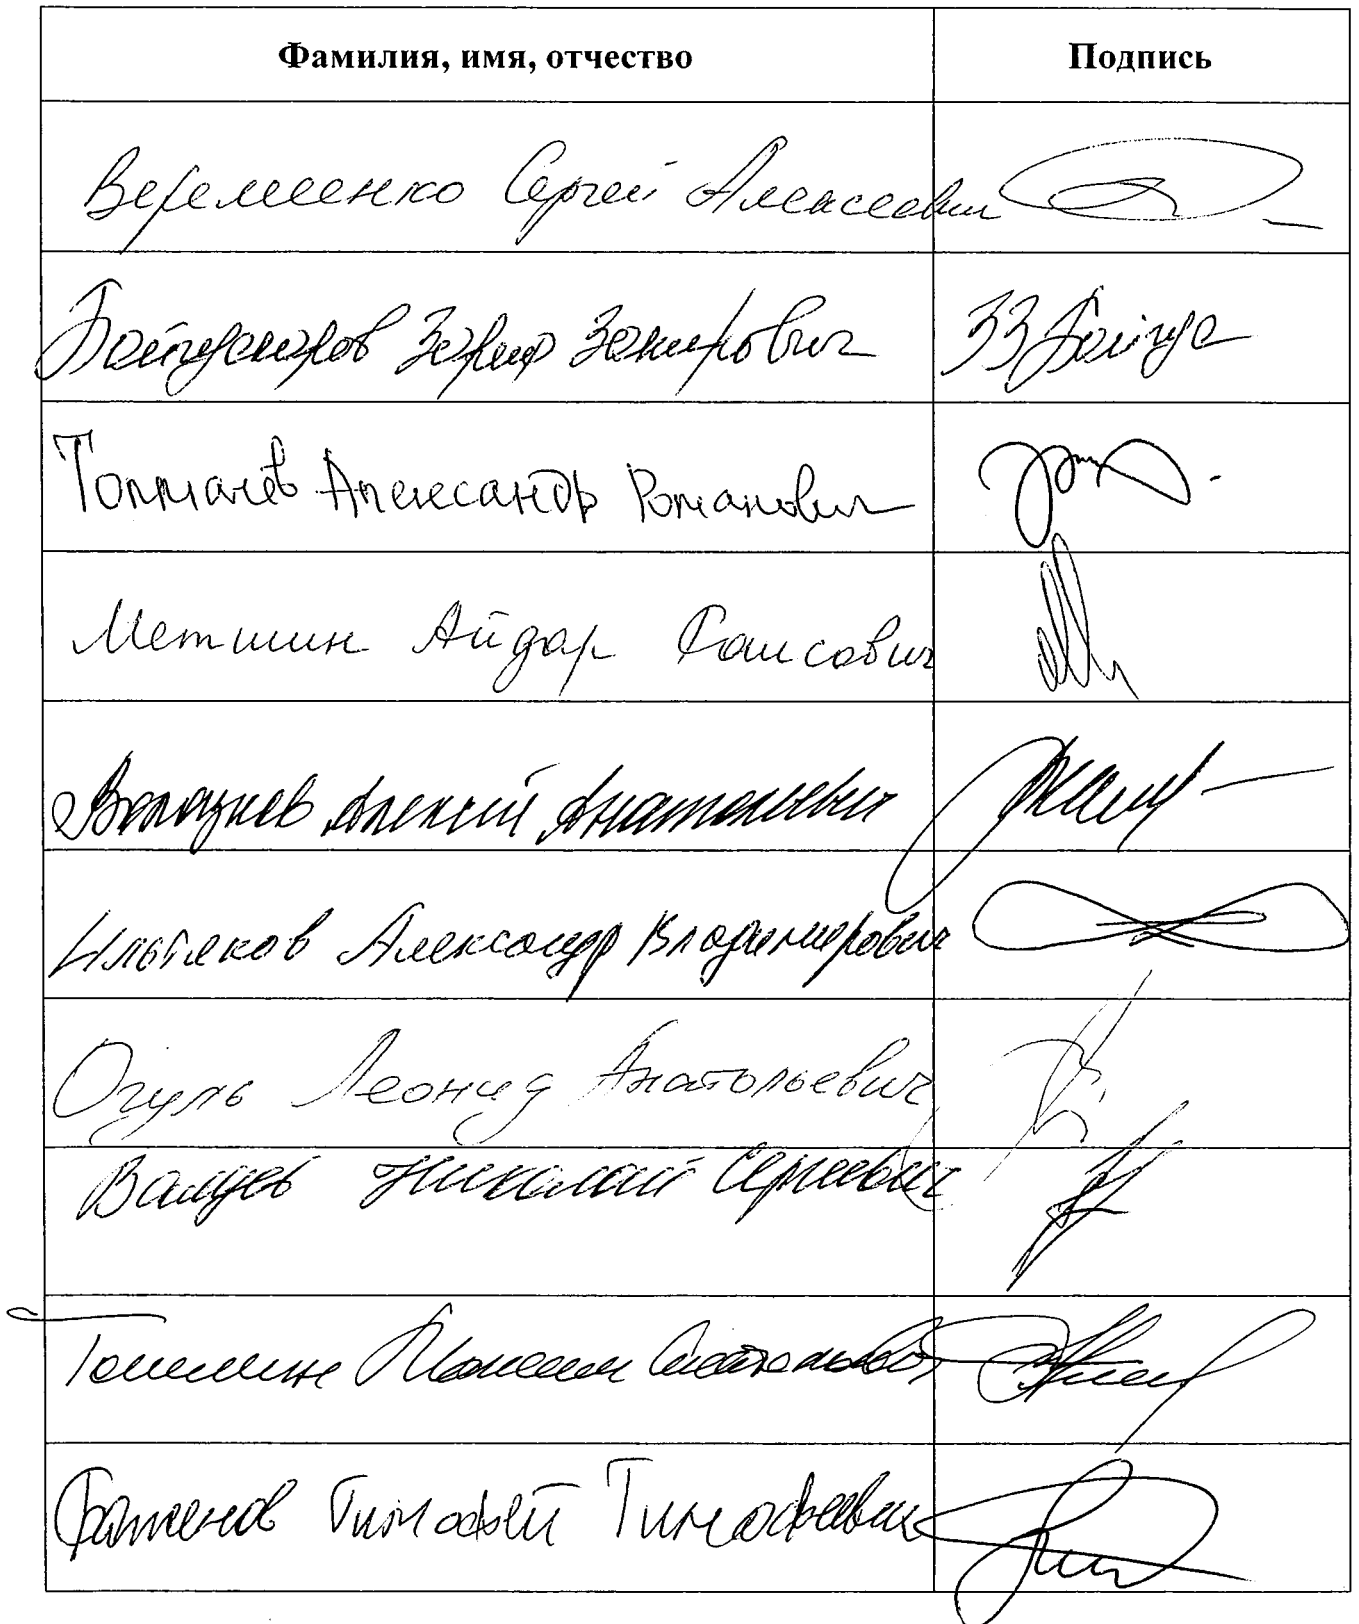 Фамилия, имя, отчество Подпись
Веремеенко Сергей Алексеевич
Байгускаров Зариф Закирович ЗЗ Байгус
Толмачев Александр Романович
Метшин Айдар Раисович
Волоцков Алексей Анатольевич
Ильтяков Александр Владимирович
Огуль Леонид Анатольевич
Валуев Николай Сергеевич
Топилин Максим Анатольевич
Баженов Тимофей Тимофеевич